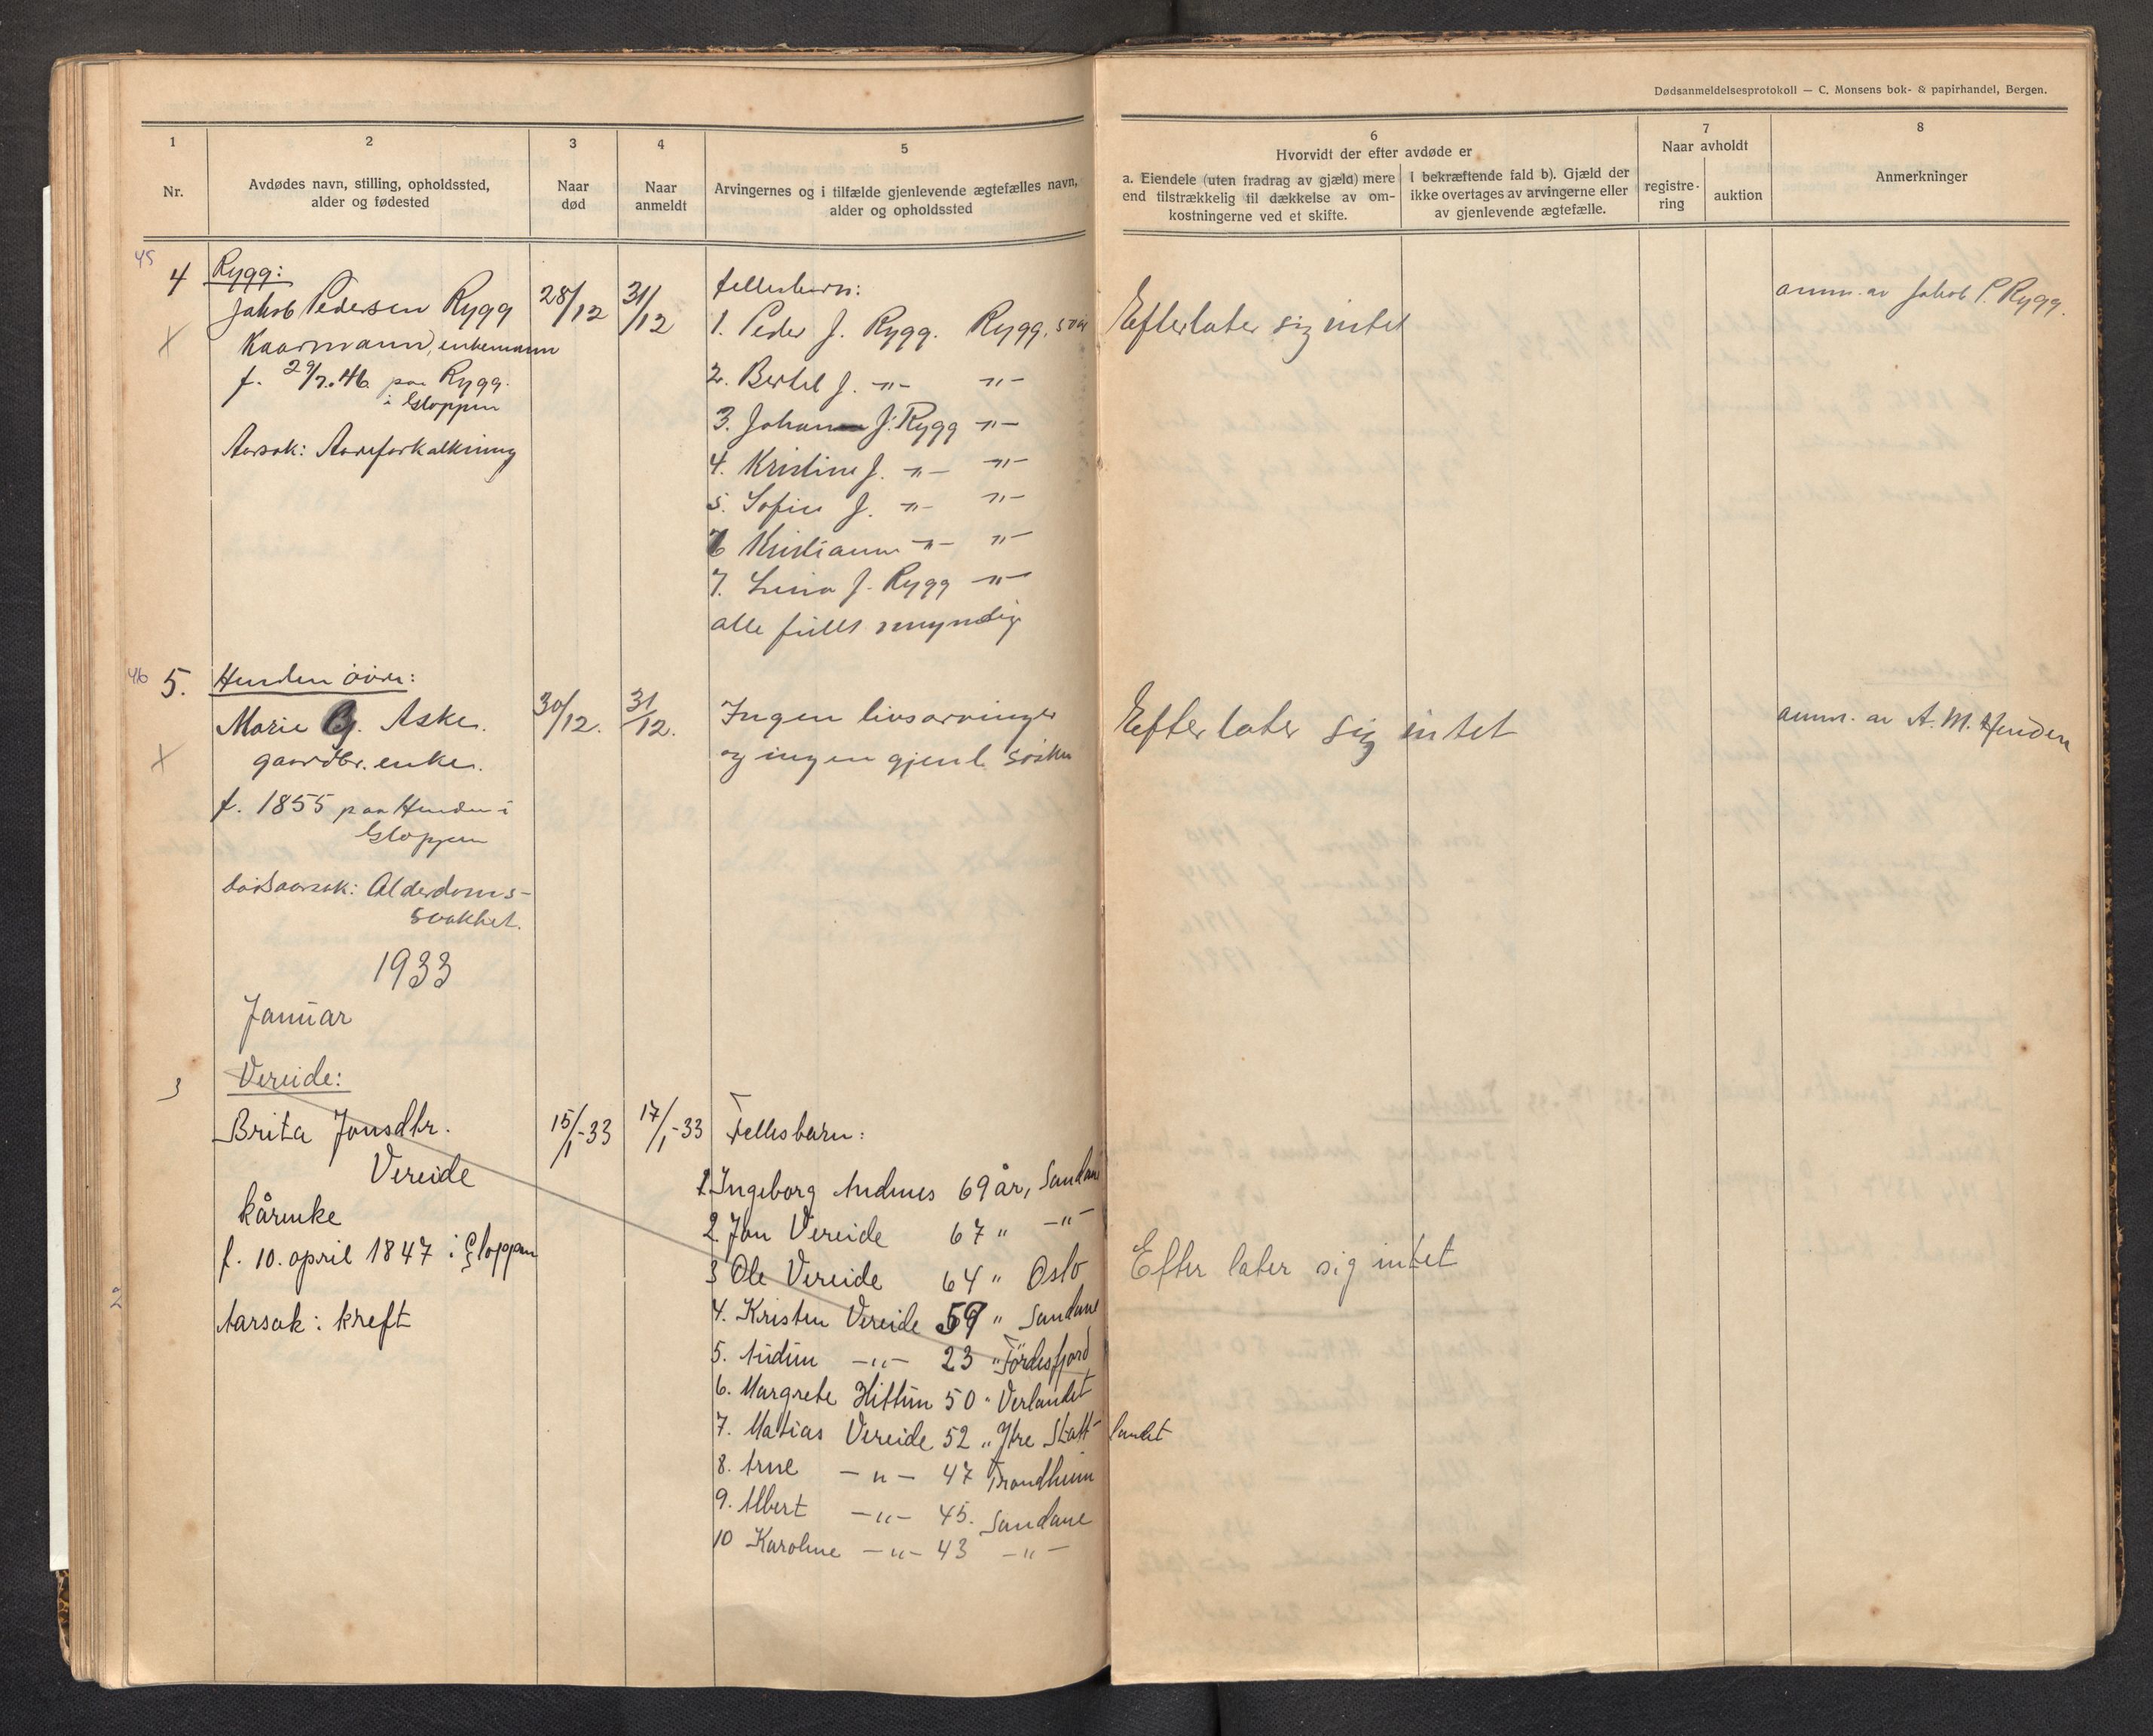 Dødsanmeldelsesprotokoll — C. Monsens bok- & papirhandel, Bergen.
1
Nr.
2
Avdødes navn, stilling, opholdssted,
alder og fødested
3
Naar
død
4
Naar
anmeldt
5
Arvingernes og i tilfælde gjenlevende ægtefælles navn,
alder og opholdssted
6
Hvorvidt der efter avdøde er
a. Eiendele (uten fradrag av gjæld) mere
end tilstrækkelig til dækkelse av om-
kostningerne ved et skifte.
I bekræftende fald b). Gjæld der
ikke overtages av arvingerne eller
av gjenlevende ægtefælle.
7
Naar avholdt
registre-
ring
auktion
8
Anmerkninger
45
4
Rygg:
Jakob Pedersen Rygg
Kaarmann, enkemann
f. 29/7.46 paa Rygg
i Gloppen
Aarsak: Aareforkalkning
28/12
31/12
fellesbarn:
1. Peder J. Rygg. Rygg,
2. Bertel J. -"- -"-
3. Johan J. Rygg -"-
4. Kristine J. -"- -"-
5. Sofie J. -"- -"-
6 Kristianne -"- -"-
7. Lina J. Rygg -"-
alle fullt myndig
Efterlater sig intet
anm. av Jakob P. Rygg.
46
5.
Henden övre:
Marie Aske.
gaardbr. enke.
f. 1855 paa Henden i
Gloppen
Dödsaarsak: Alderdoms-
svakhet.
30/12.
31/12.
Ingen livsarvinger
og ingen gjenl. sösken
Efterlater sig intet
anm. av A. M. Henden
1933
Januar
3
Vereide:
Brita Jonsdtr.
Vereide
kårenke
f. 10. april 1847 i Gloppen
Aarsak: kreft
2
15/1-33
17/1-33
Fellesbarn:
1 Ingeborg Andenes 69 år, Sandane
2. Jon Vereide 67 " -"-
3 Ole Vereide 64 " Oslo
4. Kristen Vereide 59 " Sandane
5. Audun -"- 23 " Fördesfjord
6. Margrete Hittun 50 " Verlandet
7. Matias Vereide 52 " Ytre Statt-landet
8. Arne -"- 47 Trondheim
9. Albert -"- 45. Sandane
10 Karoline -"- 43 -"-
Efter later sig intet